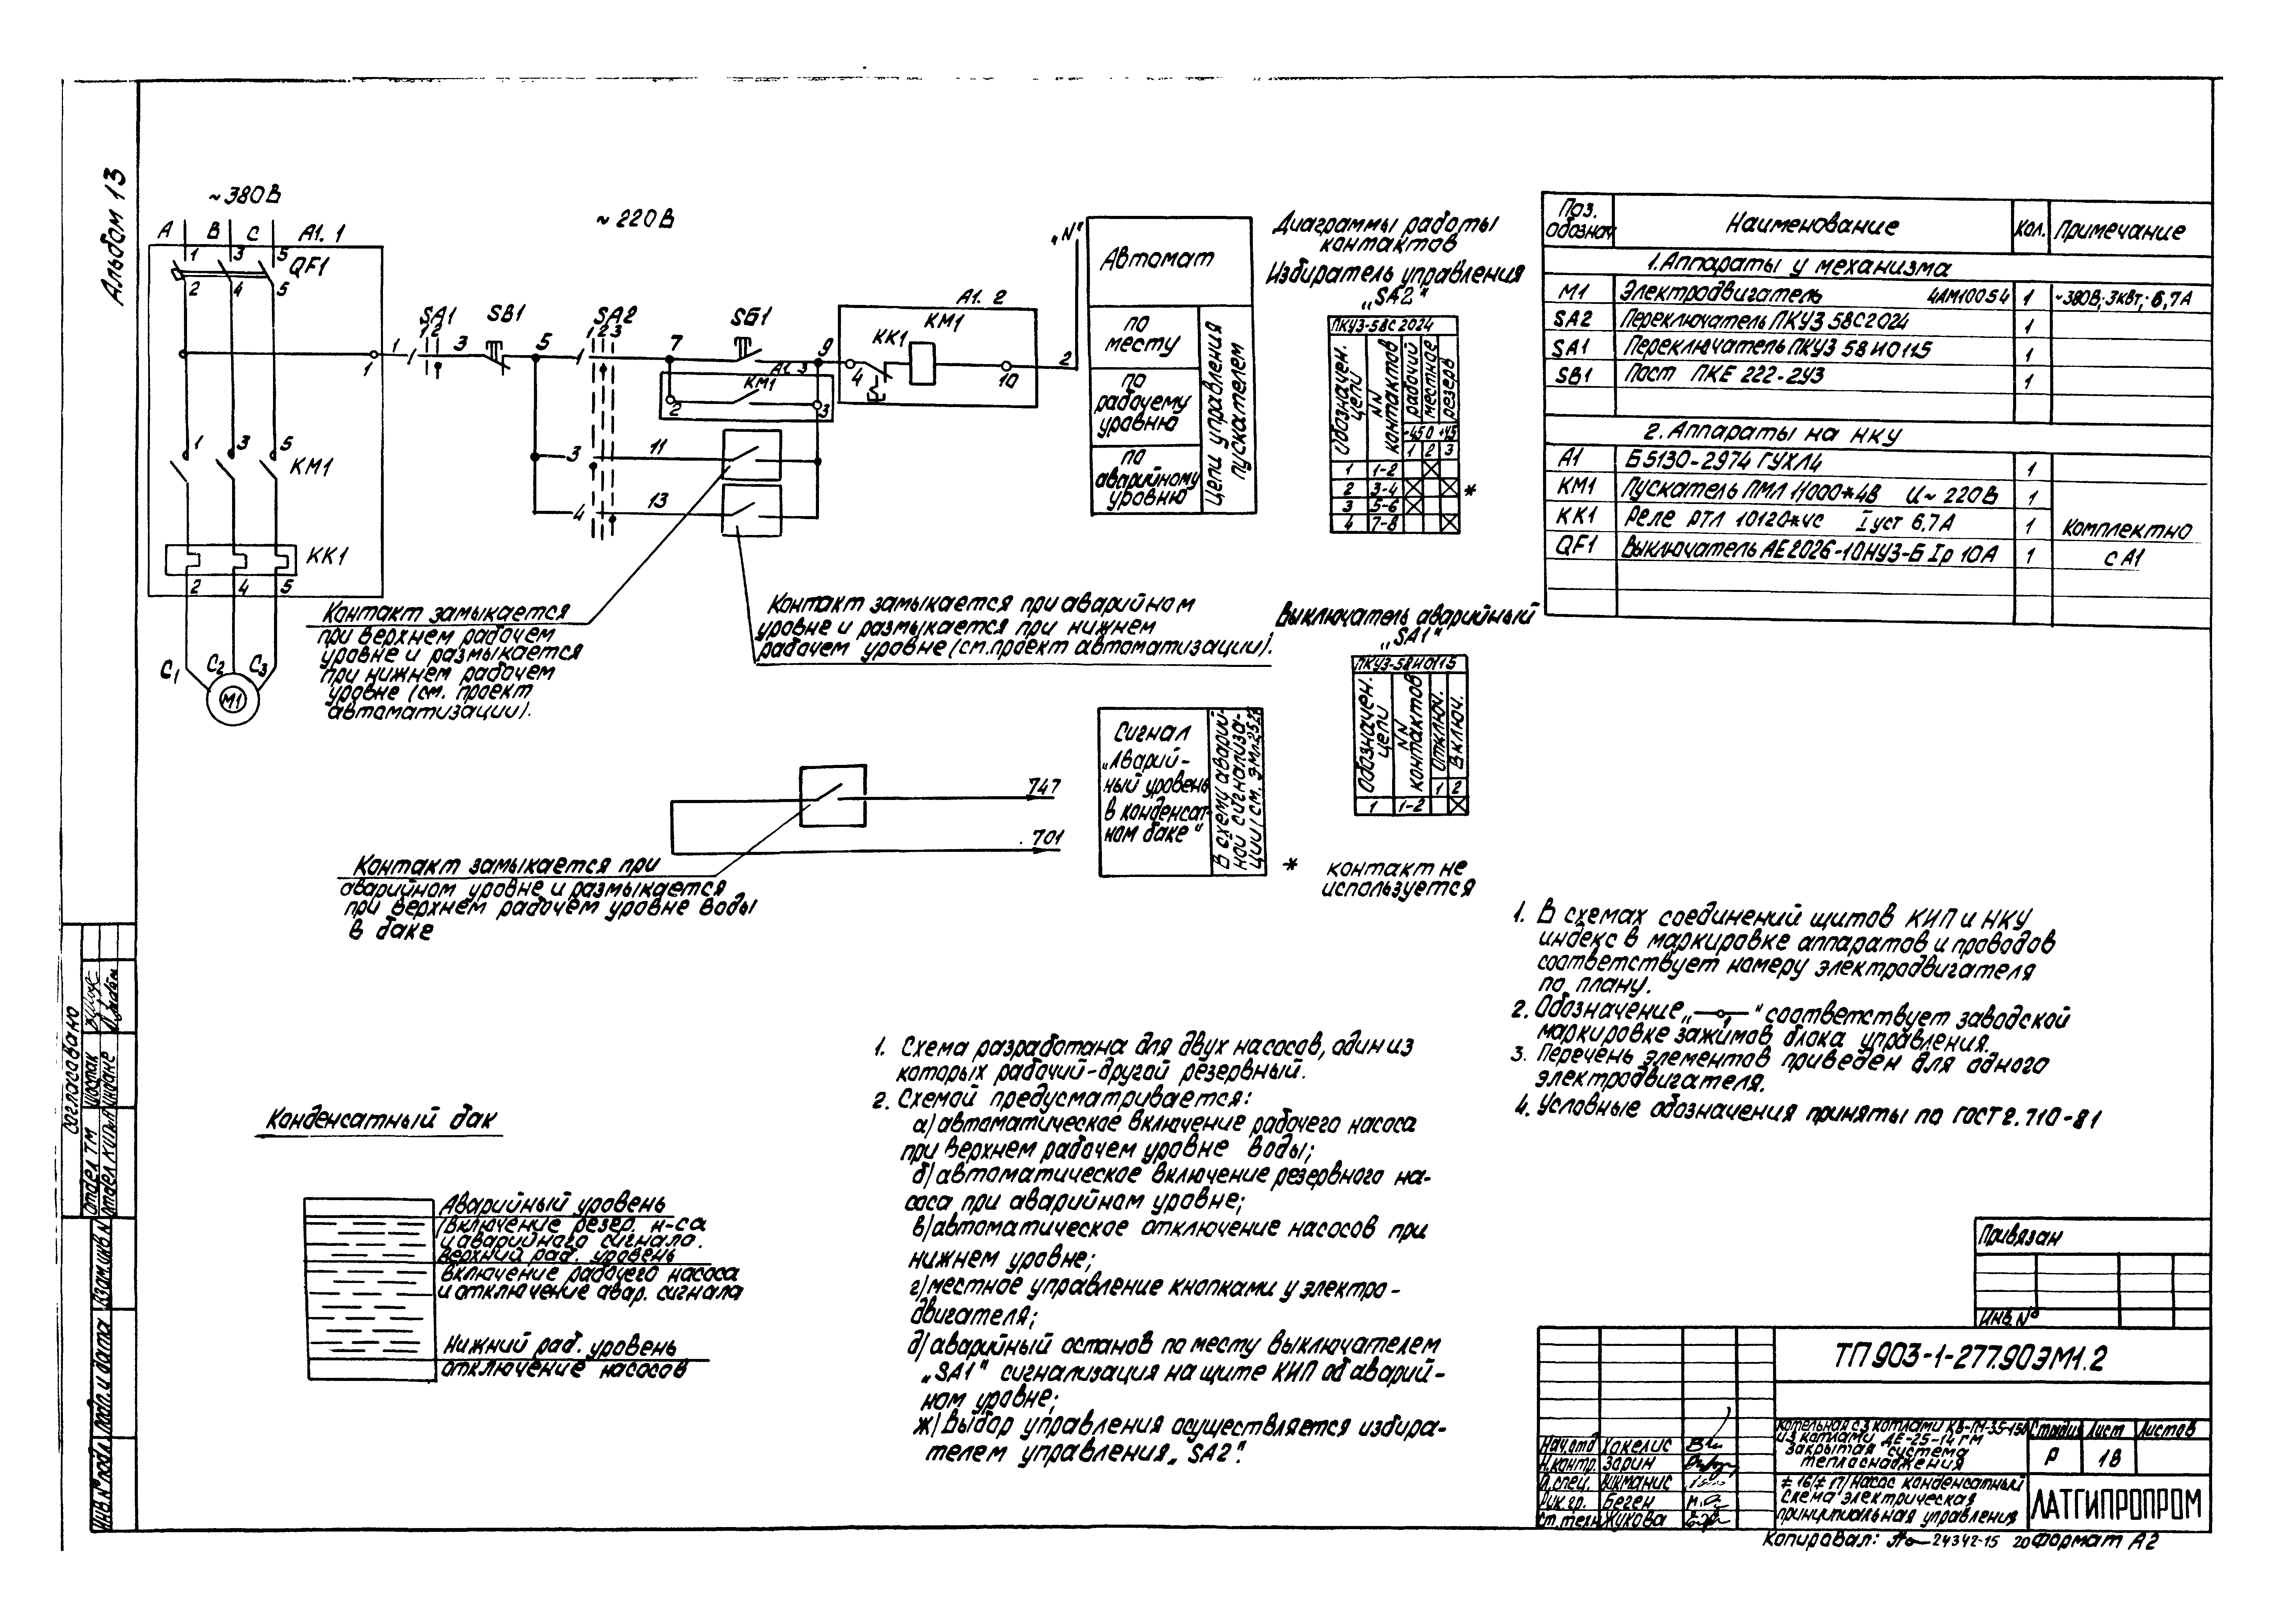 Альбом 13
~380В
А В С А1.1
1 3 5
QF1
2 4 5
~220В
SA1
1 2
SB1
SA2
1 2 3
SБ1
А1.2
КМ1
КК1
"N"
1 1 3 5 7 9 4 10 2
А1.3
КМ1
2 3
3 11
4 13
1 3 5
КМ1
КК1
2 4 5
С1 С2 С3
М1
Автомат
по
месту
по
рабочему
уровню
по
аварийному
уровню
Цепи управления
пускателем
Контакт замыкается
при верхнем рабочем
уровне и размыкается
при нижнем рабочем
уровне (см. проект
автоматизации).
Контакт замыкается при аварийном
уровне и размыкается при нижнем
рабочем уровне (сп.проект автоматизации).
747
701
Контакт замыкается при
аварийном уровне и размыкается
при верхнем рабочем уровне воды
в баке
Сигнал
"Аварий-
ный уровень
в конденсат-
ном баке"
В схему аварий-
ной сигнализа-
ции (см.
Диаграммы работы
контактов
Избиратель управления
"SA2"
ПКУ3-58С2024
Обозначен.
цепи
NN
контактов
рабочий
местное
резерв
-45 0 +45
1 2 3
1 1-2
2 3-4 *
3 5-6
4 7-8
Выключатель аварийный
"SA1"
ПКУ3-58И0115
Обозначен.
цепи
NN
контактов
Отключ.
Включ.
1 2
1 1-2
* контакт не
используется
Поз. обознач Наименование Кол. Примечание
1.Аппараты у механизма
М1 Электродвигатель 4АМ100S4 1 ~380В; 3кВт; 6,7А
SA2 Переключатель ПКУ3 58С2024 1
SA1 Переключатель ПКУ3 58И0115 1
SB1 Пост ПКЕ 222-2У3 1
2.Аппараты на НКУ
А1 Б5130-2974 ГУХЛ4 1
КМ1 Пускатель ПМЛ 11000*4В U~220В 1
КК1 Реле РТЛ 10120*4С Iуст 6,7А 1 Комплектно
QF1 Выключатель АЕ2026-10НУ3-Б Iр 10А 1 с А1
1. В схемах соединений щитов КИП и НКУ
индекс в маркировке аппаратов и проводов
соответствует номеру электродвигателя
по плану.
2. Обозначение " " соответствует заводской
маркировке зажимов блока управления.
3. Перечень элементов приведен для одного
электродвигателя.
4. Условные обозначения приняты по гост 2.710-81
1. Схема разработана для двух насосов, один из
которых рабочий-другой резервный.
2. Схемой предусматривается:
а) автоматическое включение рабочего насоса
при верхнем рабочем уровне воды;
б) автоматическое включение резервного на-
соса при аварийном уровне;
в) автоматическое отключение насосов при
нижнем уровне;
г) местное управление кнопками у электро-
двигателя;
д) аварийный останов по месту выключателем
"SA1" сигнализация на щите КИП об аварий-
ном уровне;
ж) Выбор управления осуществляется избира-
телем управления "SA2".
Конденсатный бак
Аварийный уровень
(включение резер. н-са
и аварийного сигнала.
Верхний раб. уровень
включение рабочего насоса
и отключение авар. сигнала
Нижний раб. уровень
отключение насосов
согласовано
Отдел ТМ Шопак
Отдел КИПиА
Взам.инв.N
Подп. и дата
Инв.N подл.
Привязан
Инв.N
ТП 903-1-277.90 ЭМ1.2
Котельная с 3 котлами КВ-ГМ-35-150
и 3 котлами ДЕ-25-14ГМ
Закрытая система
теплоснабжения
Стадия Лист Листов
Р 18
Нач.отд Хакелис
Н.контр. Зарин
Гл.спец. Шкманис
Рук.гр. Беген
Ст.техн Жукова
#16(#17)Насос конденсатный
Схема электрическая
принципиальная управления
ЛАТГИПРОПРОМ
Копировал: 24342-15 20 Формат А2